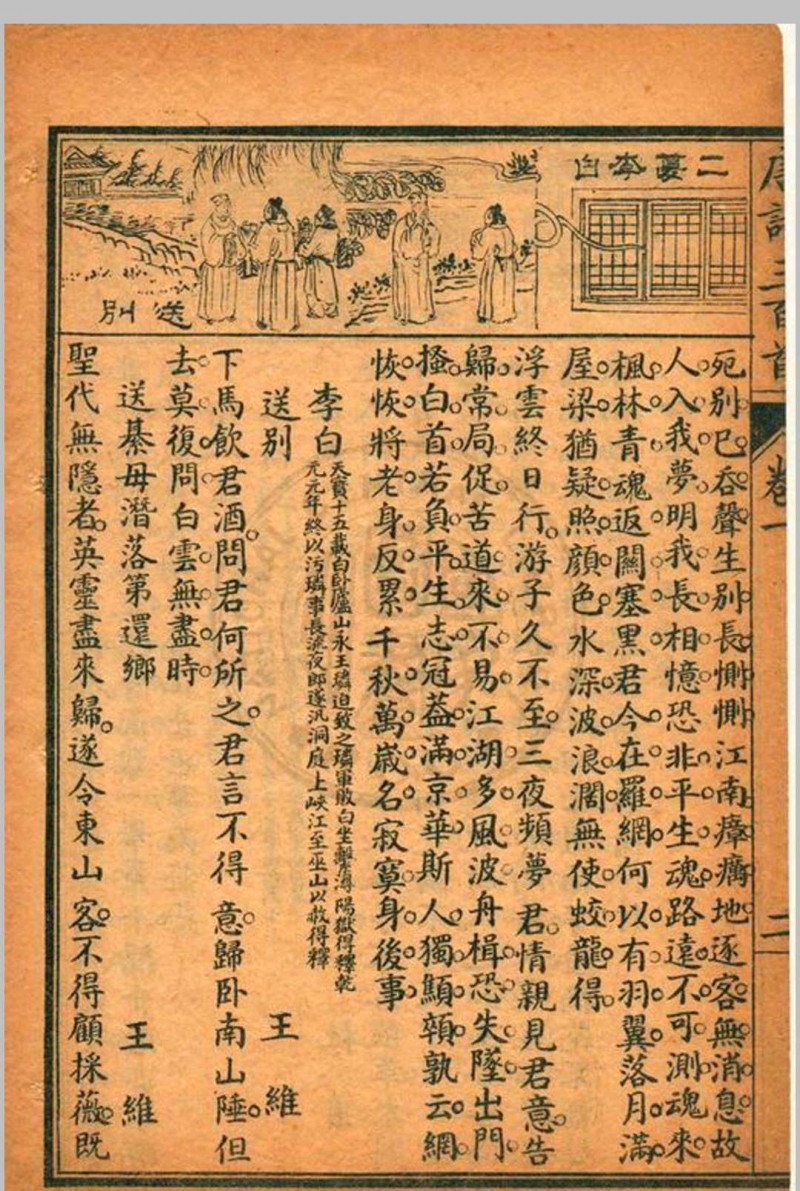 唐詩三百首 卷一 二
二夢李白
送別
死別巳吞聲生別長惻惻江南瘴癘地逐客無消息故
人入我夢明我長相憶恐非平生魂路遠不可測魂來
楓林青魂返關塞黑君今在羅網何以有羽翼落月滿
屋梁猶疑照顏色水深波浪濶無使蛟龍得
浮雲終日行。游子久不至。三夜頻夢君。情親見君意。告
歸常局促苦道來不易江湖多風波舟楫恐失墜出門
搔白首若負平生志冠蓋滿京華斯人獨顦顇孰云網
恢恢將老身反累千秋萬歲名寂寞身後事
李白 天寶十五載白卧廬山永王璘迫致之璘軍敗白坐繫潯陽獄得釋乾
元元年終以污璘事長流夜郎遂汎洞庭上峽江至巫山以赦得釋
送別 王維
下馬飲君酒。問君何所之。君言不得意。歸卧南山陲。但
去莫復問白雲無盡時
送綦毋潛落第還鄉 王維
聖代無隱者。英靈盡來歸。遂令東山客。不得顧採薇。既